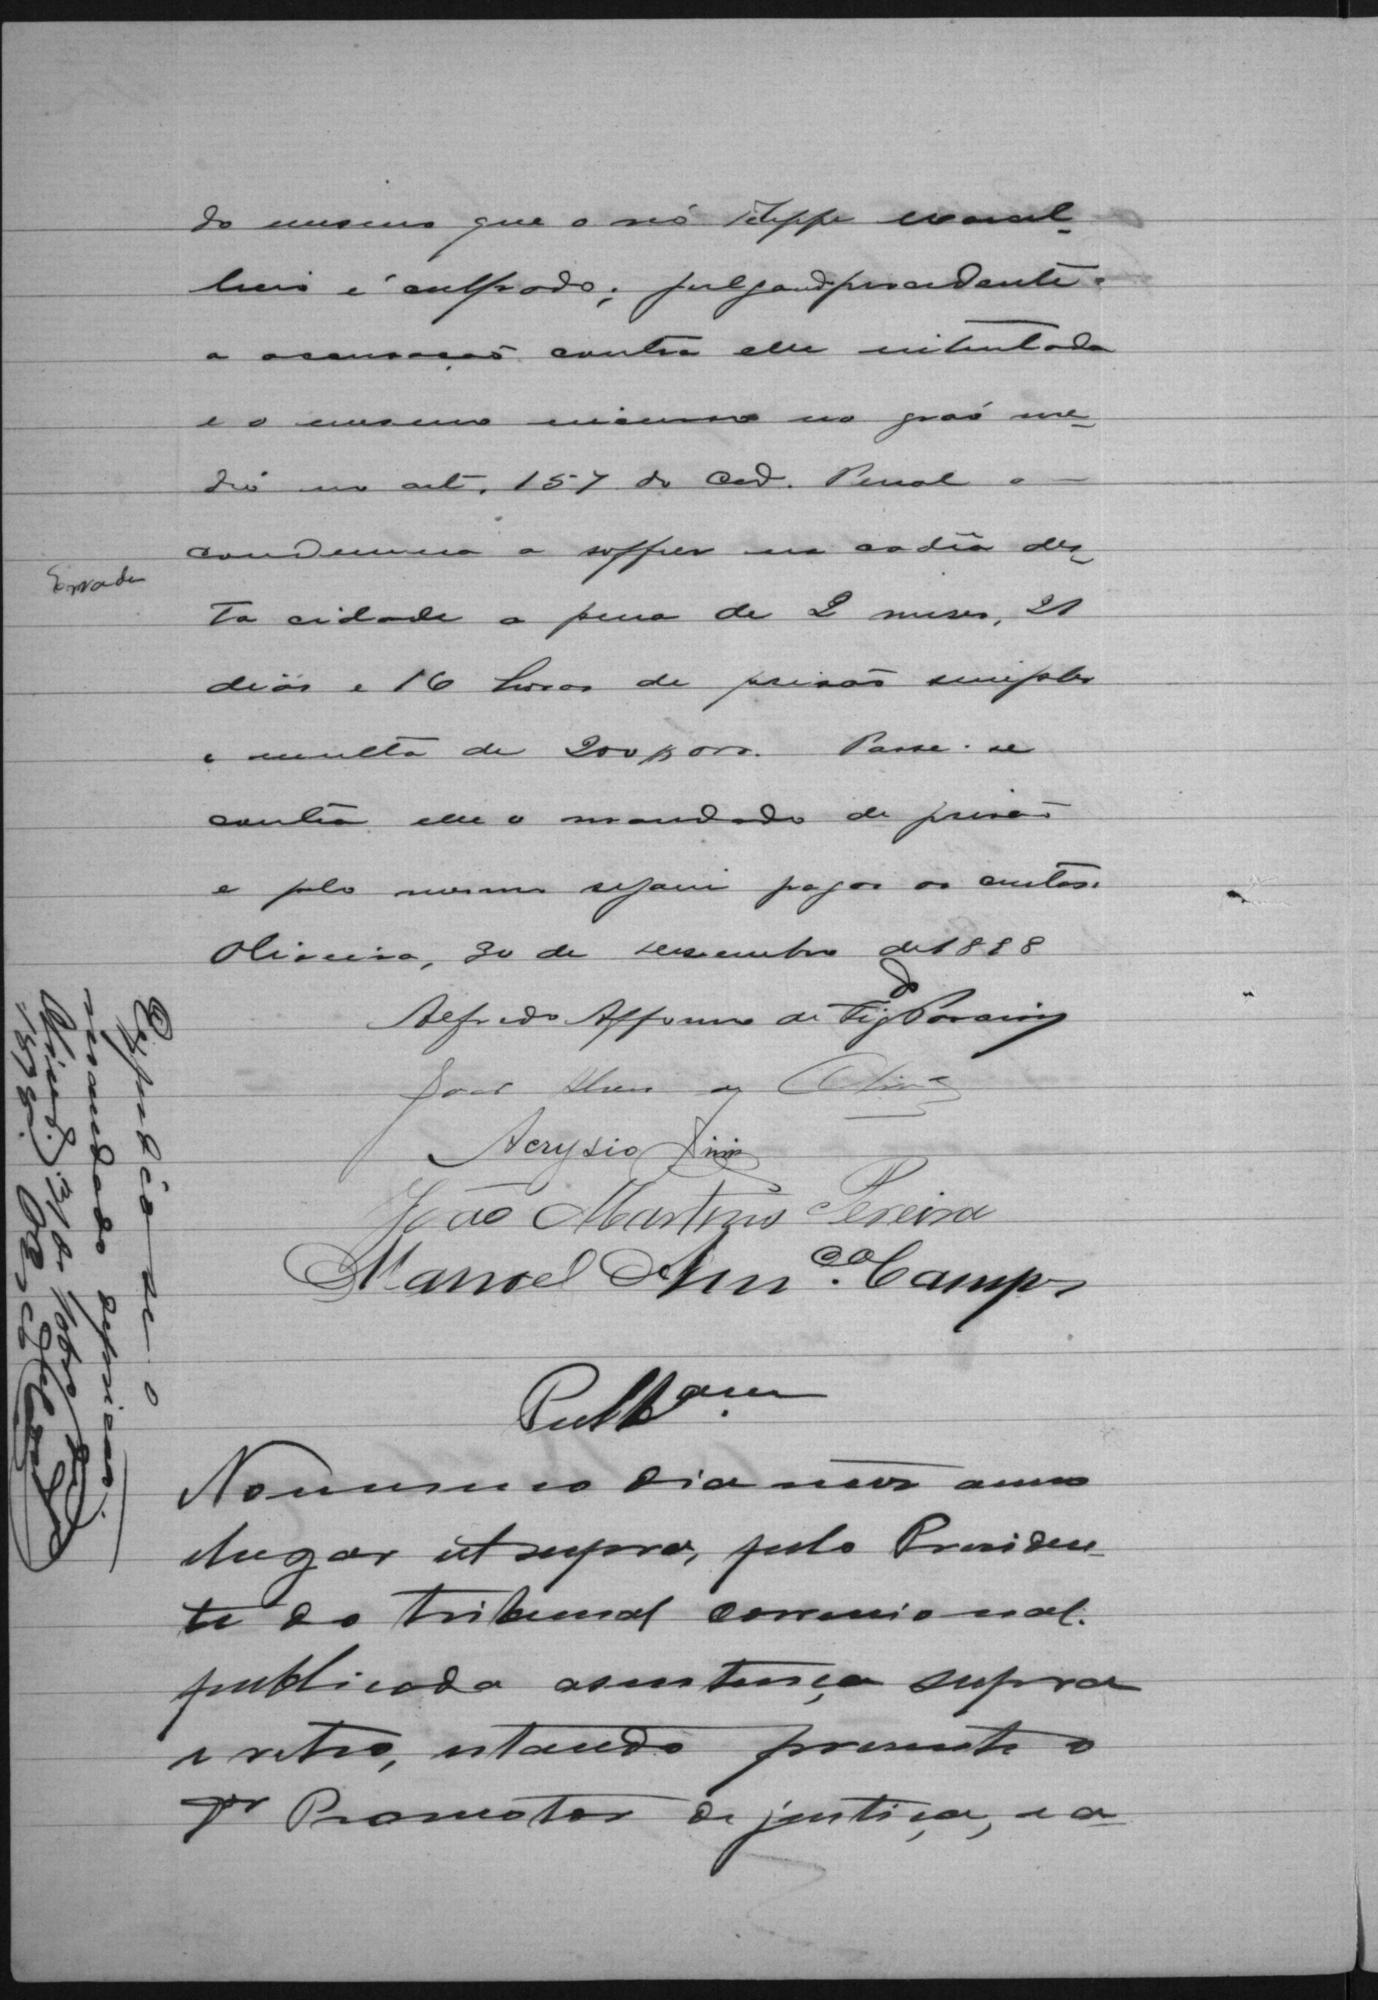 do mesmo que o réo Felippe
é culpado; julgando procedente
a accusação contra elle intentada
e o mesmo incurso no gráo me-
dio no art. 157 do Cod. Penal o
condemna a soffrer na cadêa des-
ta cidade a pena de 2 meses, 21
dias e 16 horas de prisão simples
e multa de 200$000. Passe-se
contra elle o mandado de prisão
e pelo mesmo sejam pagas as custas.
Oliveira, 30 de de 1898
Alfredo Affonso de Fig.do
José de
Acrysio Diniz
João Martins Pereira
Manoel Campos
Publ.am
No mesmo dia mez anno
e lugar ut supra, pelo Presiden-
te do tribunal correcional.
publicada a sentença supra
e retro, estando presente o
Dr Promotor de justiça, e a-
Expedio-se o
mandado de prisão.